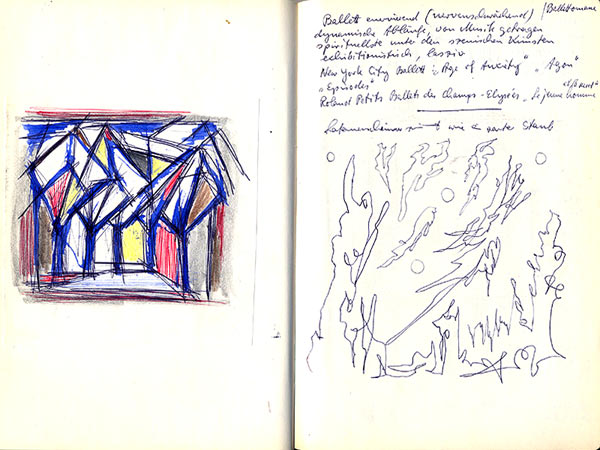 Ballett enervirend (nervenschwächend) / Ballettomane
dynamische Abläufe, von Musik getragen
spirituellste unter den szenischen Künsten
exhibitionistisch, lasziv
New York City Ballett: „Age of Anxiety“ „Agon“
„Episodes“
Roland Petits Ballets des Champs-Elysées „Le jeune homme
et la mort“
wie zarte Staub